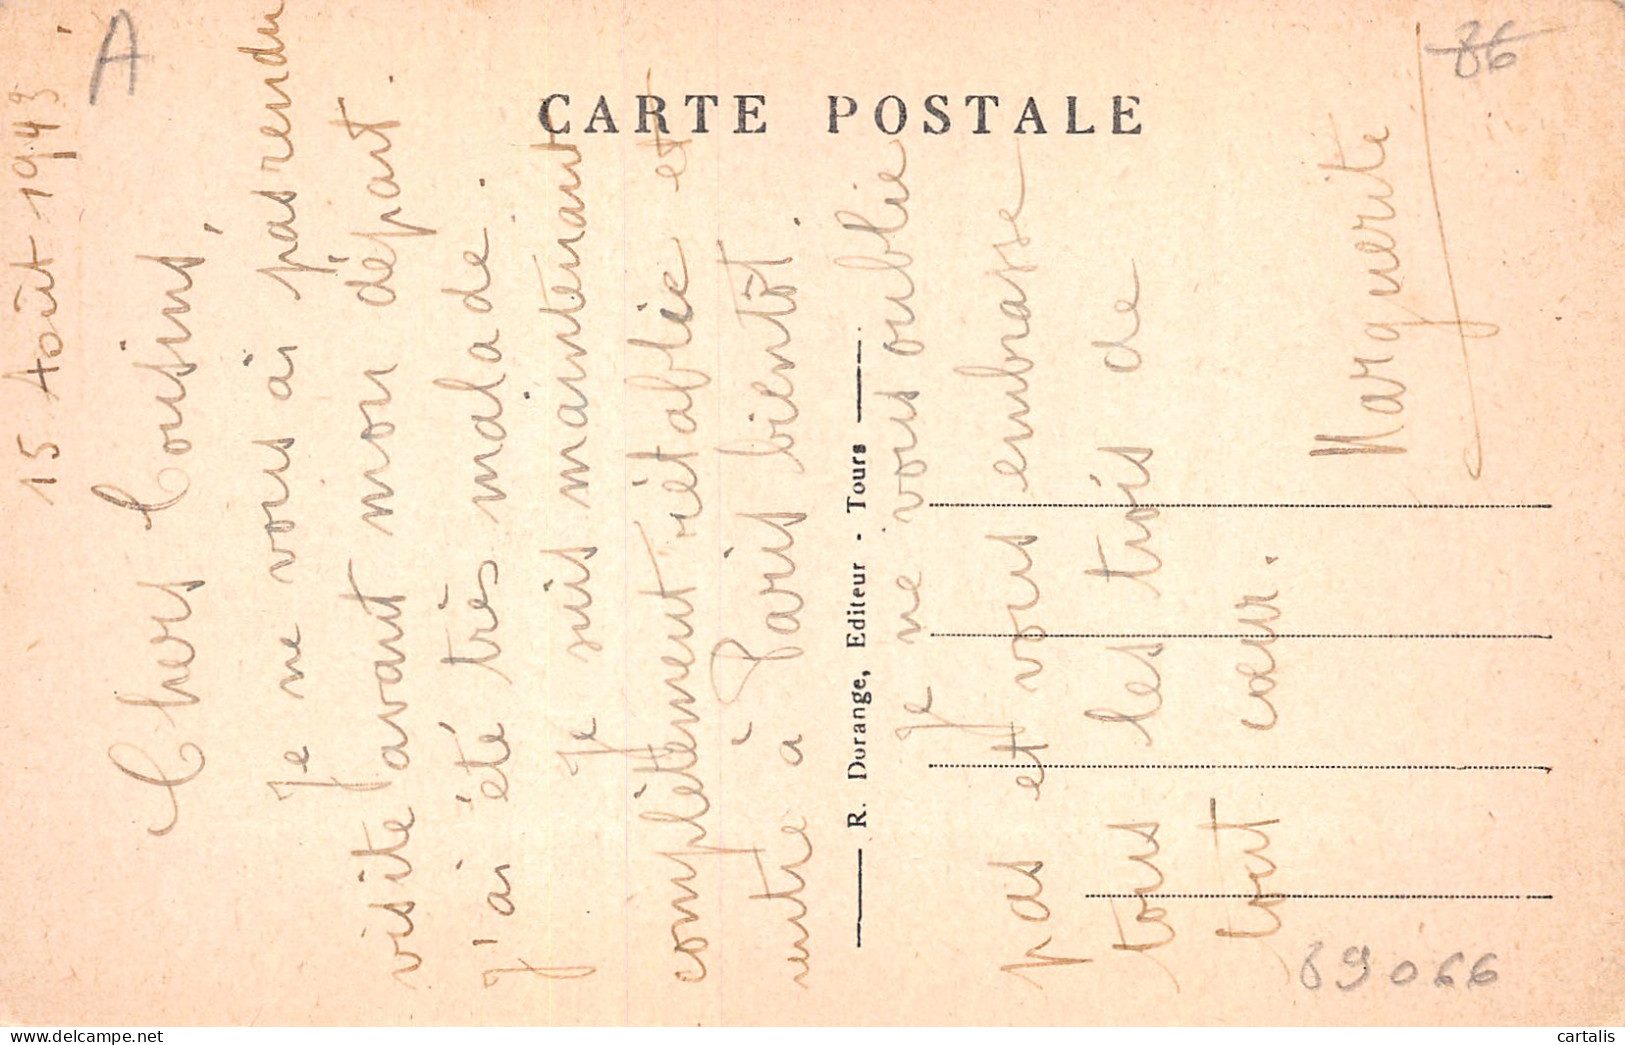 15 Août 1943,
A
Chers Cousins,
Je ne vous ai pas rendu
visite avant mon départ.
J'ai été très malade.
Je suis maintenant
complètement rétablie et
rentre à Paris bientôt.
Je ne vous oublie
pas et vous embrasse
tous les trois de
tout cœur.
Marguerite
CARTE POSTALE
R. Dorange, Editeur - Tours
86
89066
cartalis
cartalis.com